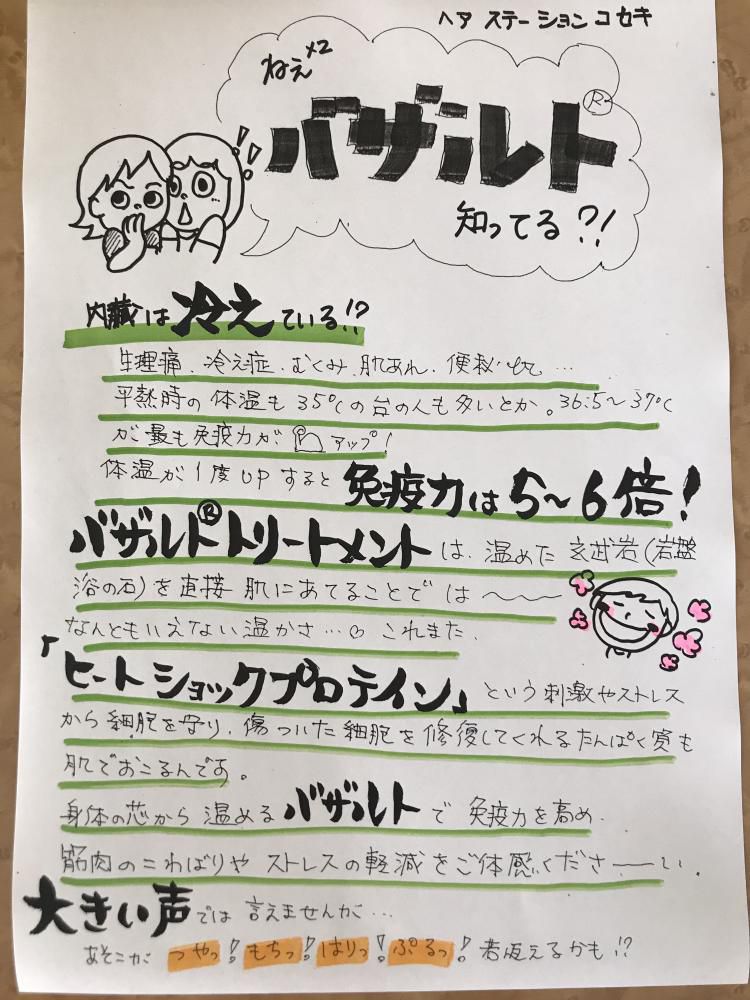 ヘア ステーション コセキ
ねえ×2
バザルト®
知ってる?!
内臓は冷えている!?
生理痛、冷え症、むくみ、肌あれ、便秘 etc…
平熱時の体温も35℃の台の人も多いとか。36.5〜37℃
が最も免疫力が アップ!
体温が1度UPすると 免疫力は5〜6倍!
バザルト®トリートメントは、温めた玄武岩(岩盤
浴の石)を直接 肌にあてることでは〜〜〜
なんともいえない温かさ…♡ これまた、
「ヒートショックプロテイン」という刺激やストレス
から細胞を守り、傷ついた細胞を修復してくれるたんぱく質も
肌でおこるんです。
身体の芯から温めるバザルトで免疫力を高め、
筋肉のこわばりやストレスの軽減をご体感くださーーい。
大きい声では言えませんが…
あそこが つやっ!もちっ!はりっ!ぷるっ!若返えるかも!?